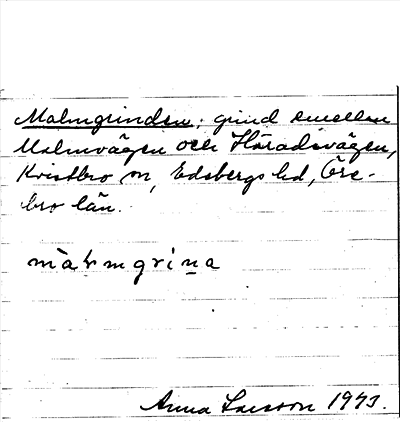 Malmgrinden; grind emellan
Malmvägen och Häradsvägen,
Kvistbro sn, Edsbergs hd, Öre-
bro län.
màḷmgrina
Anna Larsson 1973.